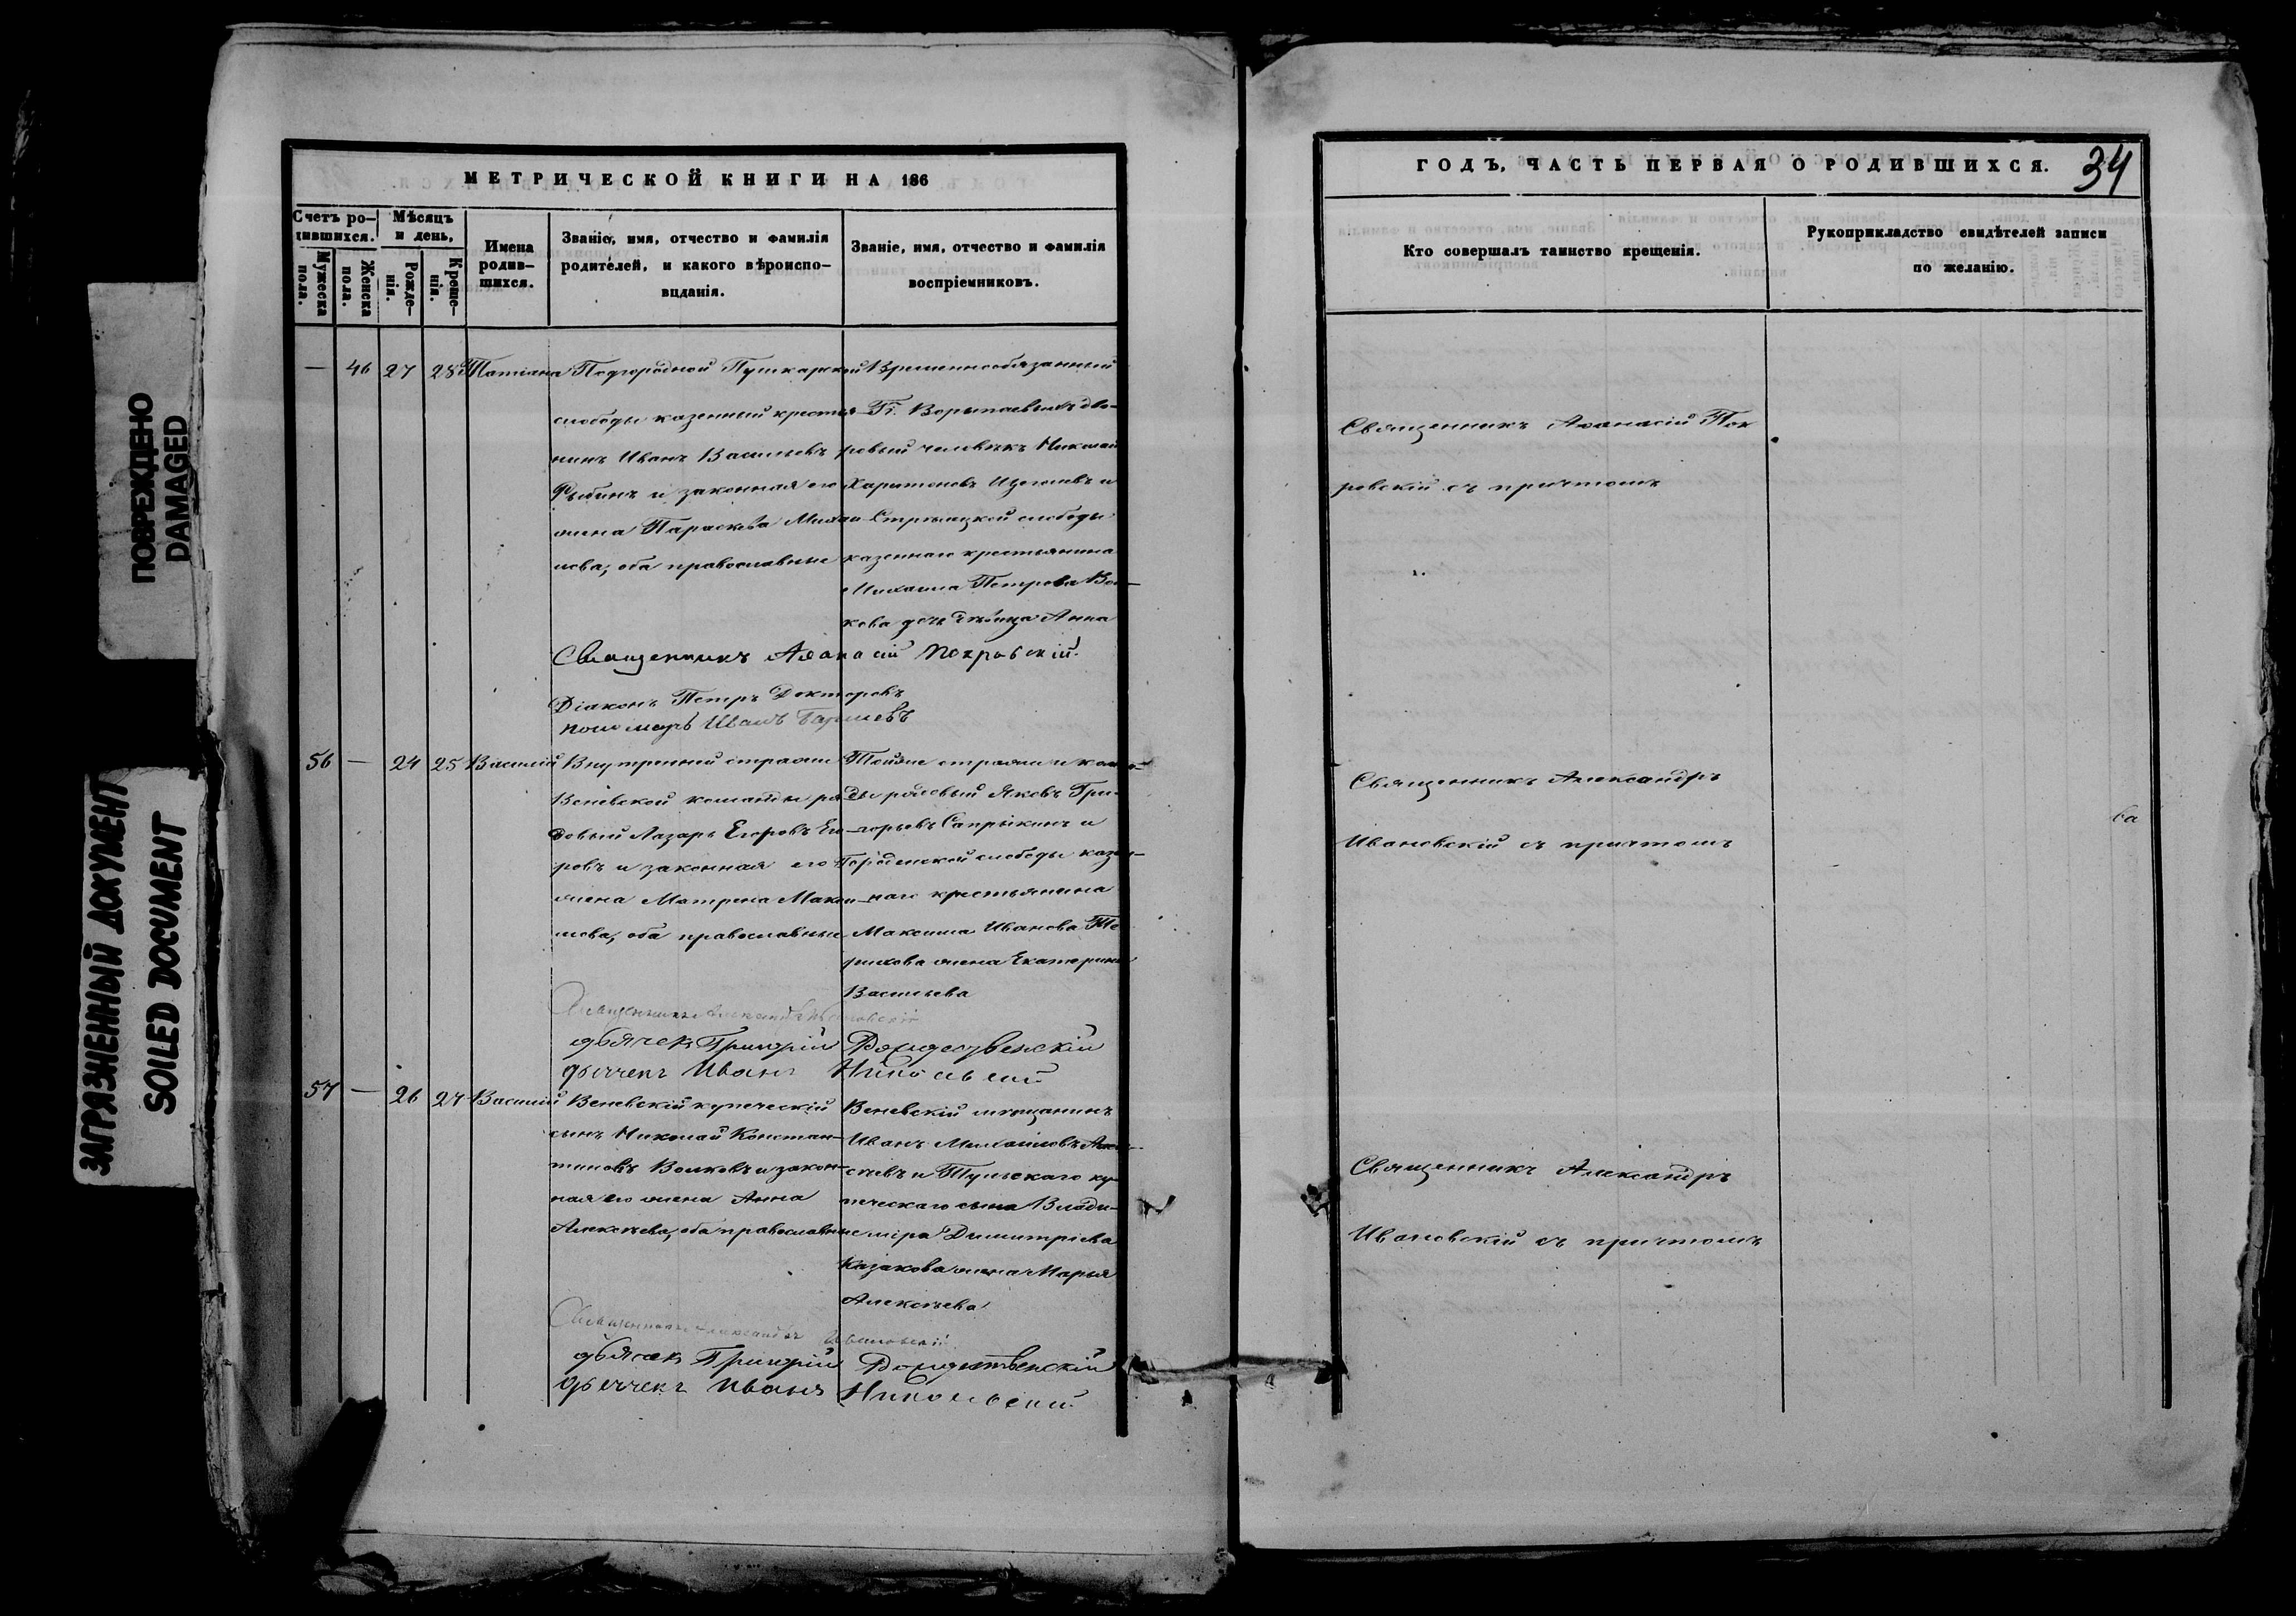 ПОВРЕЖДЕНО
DAMAGED
ЗАГРЯЗНЕННЫЙ ДОКУМЕНТ
SOILED DOCUMENT
МЕТРИЧЕСКОЙ КНИГИ НА 186
Счетъ ро-
дившихся.
Мужеска
пола.
Женска
пола.
Мѣсяцъ
и день,
Рожде-
нія.
Креще-
нія.
Имена
родив-
шихся.
Званіе, имя, отчество и фамилія
родителей, и какого вѣроиспо-
вѣданія.
Званіе, имя, отчество и фамилія
воспріемниковъ.
— 46 27 28 Татіана
Подгородной Пушкарской
слободы казенный крестья-
нинъ Иванъ Васильевъ
Рыбинъ и законная его
жена Параскева Михаи-
лова, оба православные
Временнообязанный
Гг. Ворыпаевыхъ дво-
ровый человѣкъ Николай
Харитоновъ Щеголевъ и
Стрѣлецкой слободы
казеннаго крестьянина
Михаила Петрова Вол-
кова дочь дѣвица Анна
Священникъ Аѳанасій Покровскій
Діаконъ Петръ Докторовъ
Пономарь Иванъ
56 — 24 25 Василій
Внутренней стражи
Веневской команды ря-
довый Лазарь Егоровъ Его-
ровъ и законная его
жена Матрена Макси-
мова, оба православные
Тойже стражи и коман-
ды рядовый Яковъ Гри-
горьевъ Сапрыкинъ и
Городенской слободы казен-
наго крестьянина
Максима Иванова Те-
рихова жена Екатерина
Васильева
Священникъ Александръ Ивановскій
дьячекъ Григорій Рождественскій
дьячекъ Иванъ Никольскій
57 — 26 27 Василій
Веневскій купеческій
сынъ Николай Констан-
тиновъ Волковъ и закон-
ная его жена Анна
Алексѣева, оба православные
Веневскій мѣщанинъ
Иванъ Михайловъ Алек-
сѣевъ и Тульскаго ку-
печескаго сына Влади-
міра Димитріева
Казакова жена Марья
Алексѣева
Священникъ Александръ Ивановскій
дьячекъ Григорій Рождественскій
дьячекъ Иванъ Никольскій
ГОДЪ, ЧАСТЬ ПЕРВАЯ О РОДИВШИХСЯ.
34
Кто совершалъ таинство крещенія.
Рукоприкладство свидѣтелей записи
по желанію.
Священникъ Аѳанасій Пок
ровскій съ причтомъ
Священникъ Александръ
Ивановскій съ причтомъ
Священникъ Александръ
Ивановскій съ причтомъ